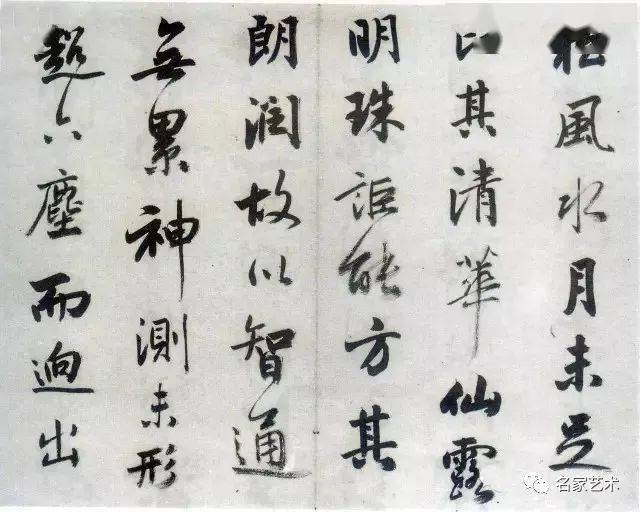 松風水月未足
比其清華仙露
明珠詎能方其
朗潤故以智通
無累神測未形
超六塵而逈出
名家艺术